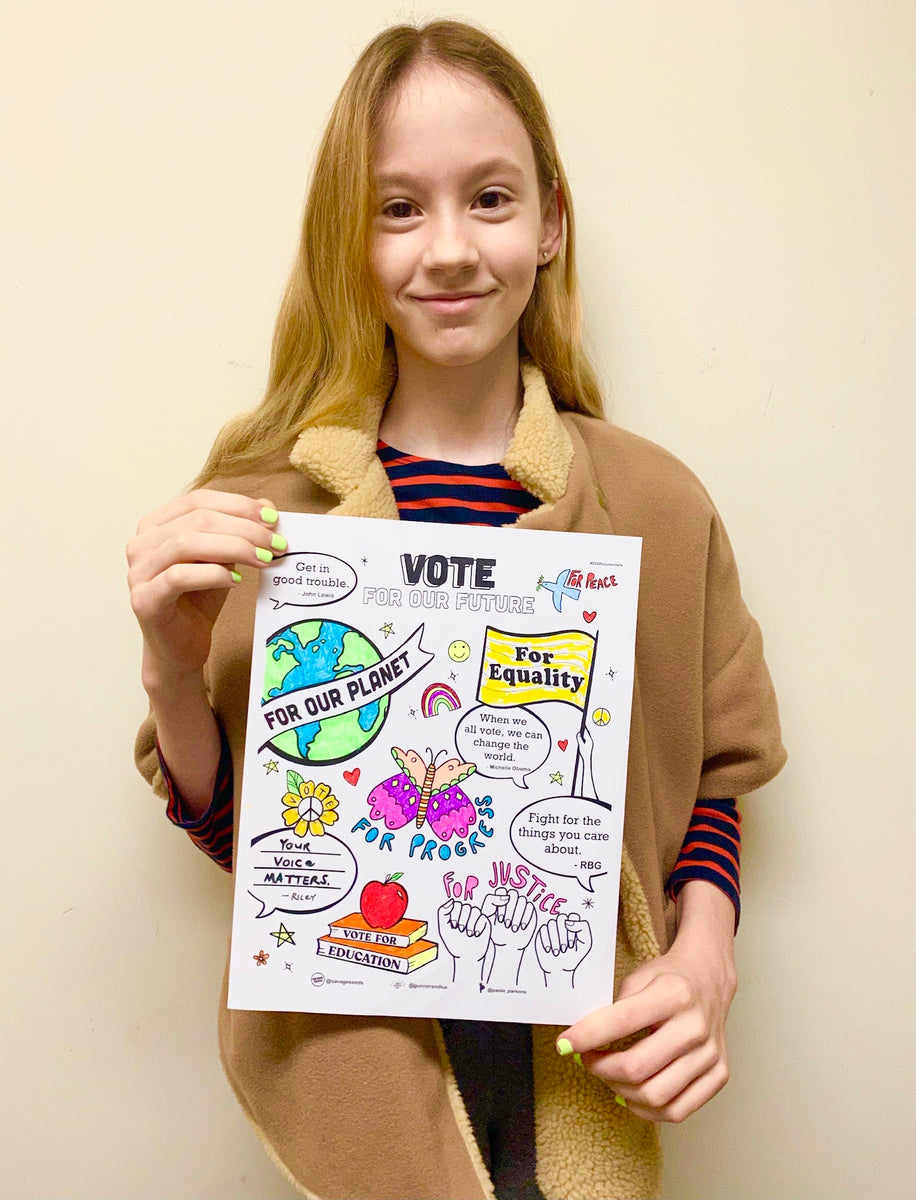 Get in
good trouble.
- John Lewis
VOTE
FOR OUR FUTURE
FOR PEACE
FOR OUR PLANET
For
Equality
When we
all vote, we can
change the
world.
- Michelle Obama
FOR PROGRESS
Fight for the
things you care
about.
- RBG
YOUR
VOICe
MATTERS.
- RILEY
FOR JUSTiCE
VOTE FOR
EDUCATION
@savageseeds
@gunnerandlux
@paola_parsons